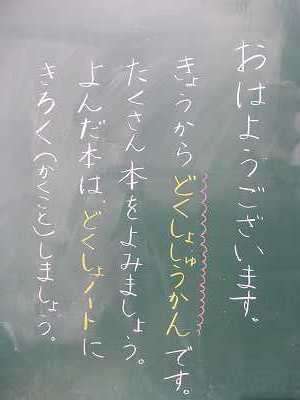 おはようございます。
きょうから どくしょしゅうかんです。
たくさん本をよみましょう。
よんだ本は、どくしょノートに
きろく(かくこと)しましょう。